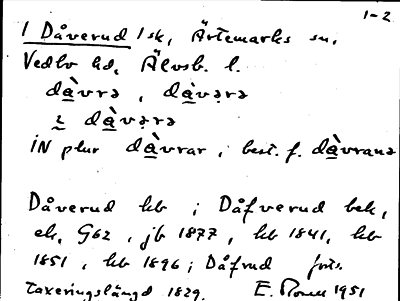 1-2
1 Dåverud 1sk, Ärtemarks sn.
Vedbo hd, Älvsb. l.
dàvrə, dàvərə
2 dàvərə
iN plur dàvrar, best. f. dàvrana
Dåverud kb ; Dåfverud bek,
ek, G62, jb 1877, kb 1841, kb
1851, kb 1896 ; Dåfrud
Taxeringslängd 1829. E. 1951